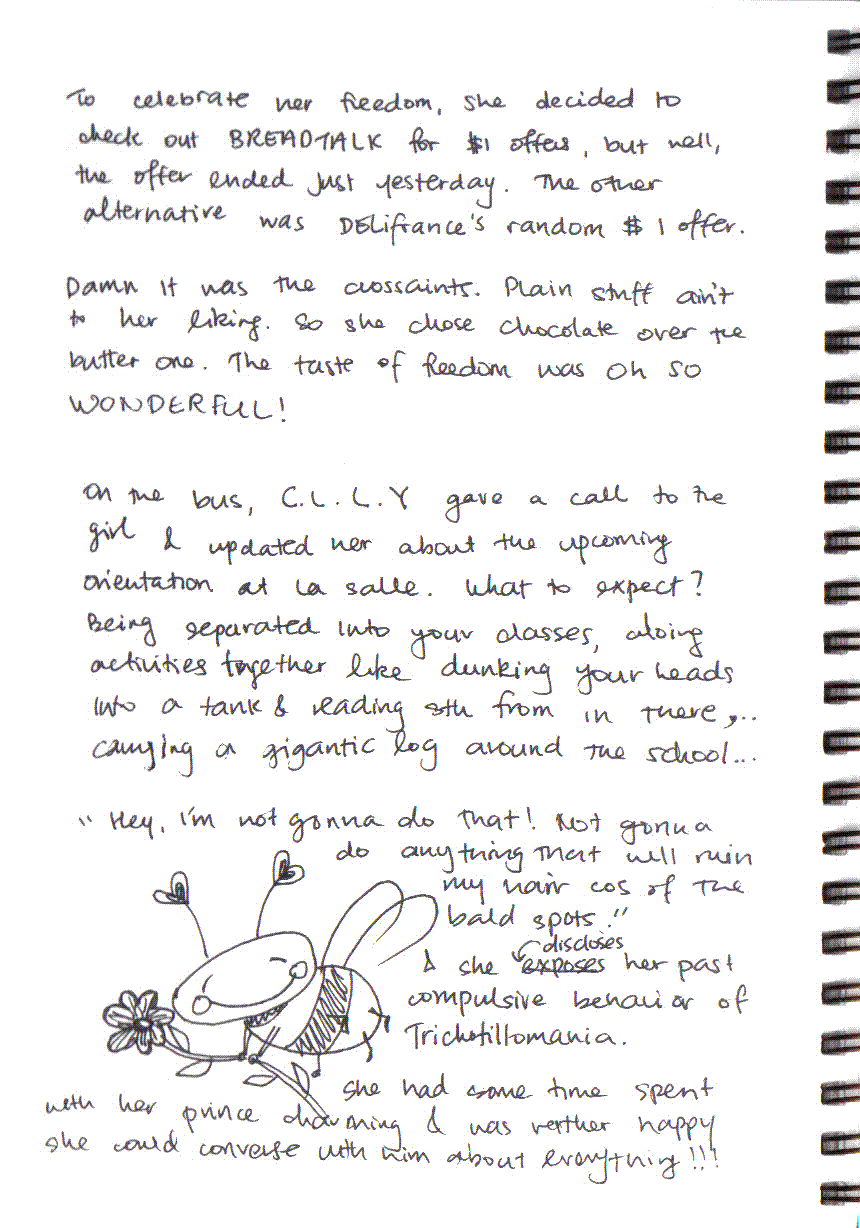 To celebrate her freedom, she decided to
check out BREADTALK for $1 offers, but well,
the offer ended just yesterday. The other
alternative was DELifrance's random $1 offer.
Damn it was the crossaints. Plain stuff ain't
to her liking. So she chose chocolate over the
butter one. The taste of freedom was oh so
WONDERFUL!
On the bus, C.L.L.Y gave a call to the
girl & updated her about the upcoming
orientation at la salle. What to expect?
Being separated into your classes, doing
activities together like dunking your heads
into a tank & reading sth from in there,...
carrying a gigantic log around the school...
"Hey, I'm not gonna do that! Not gonna
do anything that will ruin
my hair cos of the
bald spots."
discloses
& she exposes her past
compulsive behavior of
Trichotillomania.
she had some time spent
with her prince charming & was rather happy
she could converse with him about everything!!!